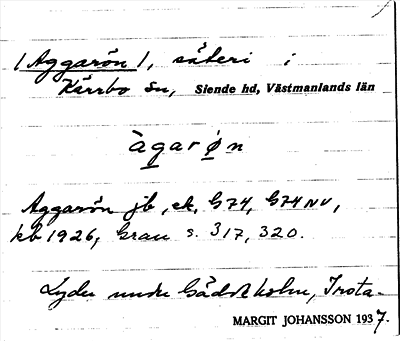 /Aggarön/, säteri i
Kärrbo sn, Siende hd, Västmanlands län
àgarø̣n
Aggarön jb, ek, G74, G74NV,
kb 1926, Grau s. 317, 320.
Lyder under Gäddeholm, Irsta.
MARGIT JOHANSSON 1937.